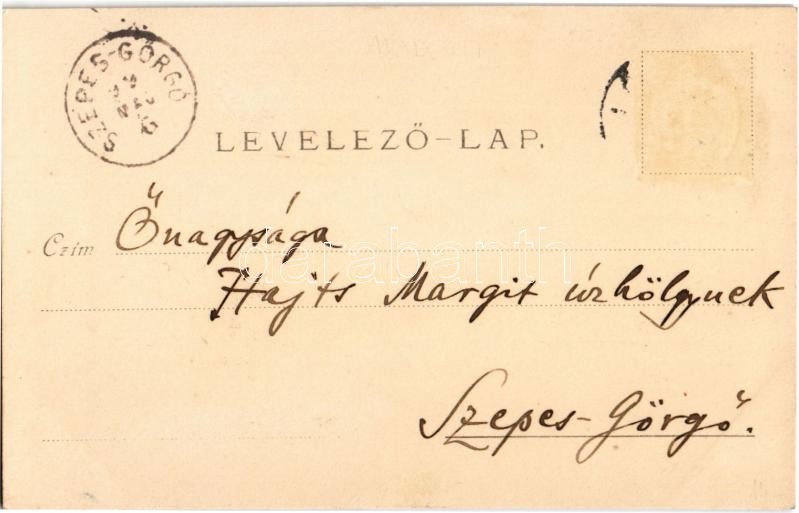 SZEPES-GÖRGŐ
LEVELEZŐ-LAP.
Czím Őnagysága
Hajts Margit úrhölgynek
Szepes-Görgő.
darabanth